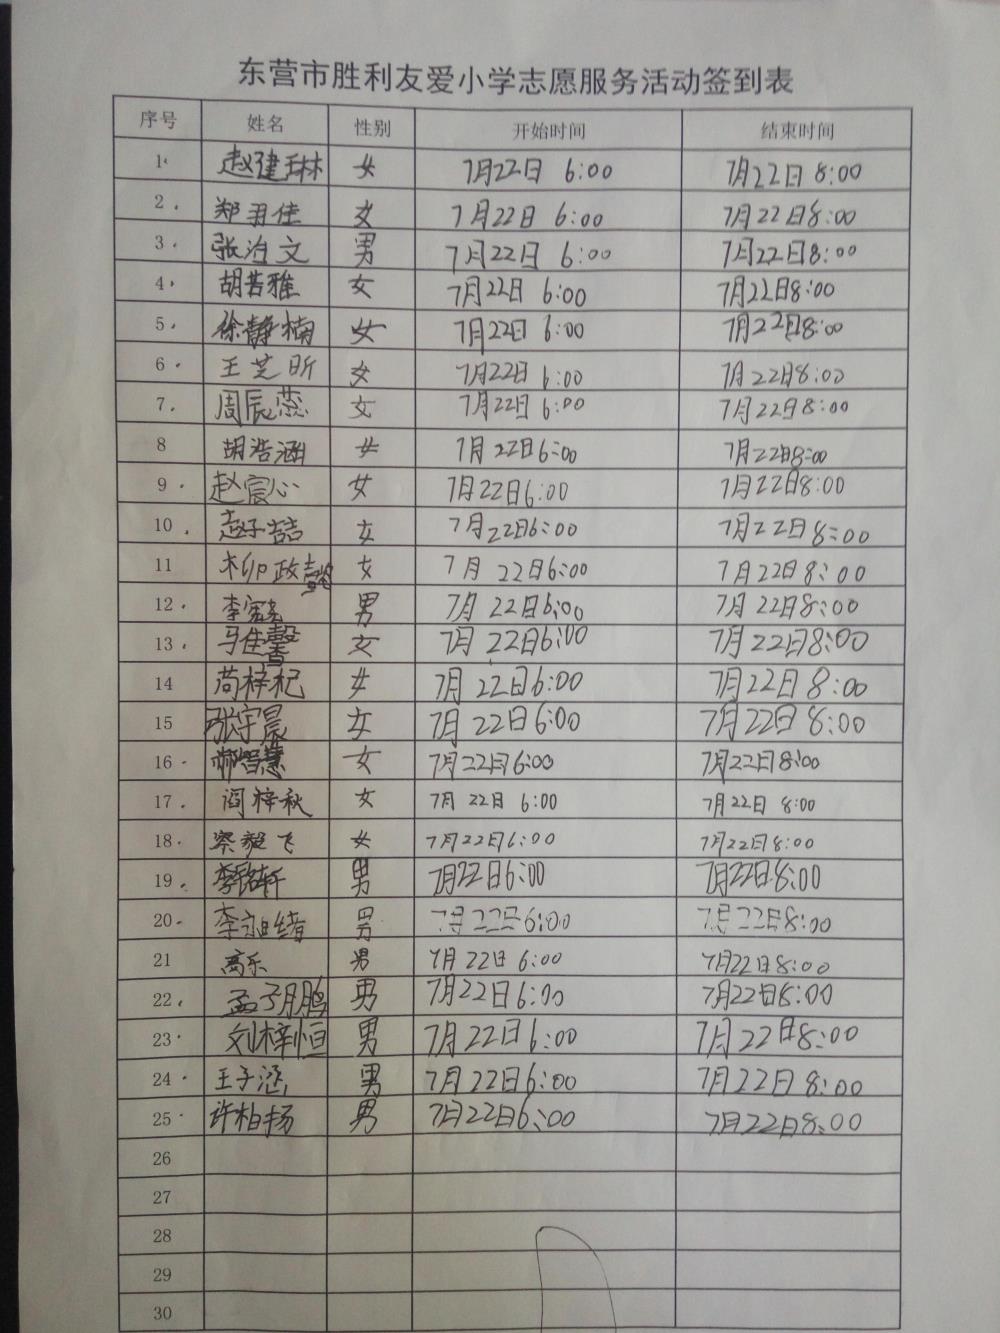 东营市胜利友爱小学志愿服务活动签到表
序号 姓名 性别 开始时间 结束时间
1. 赵建琳 女 7月22日 6:00 7月22日 8:00
2. 郑羽佳 女 7月22日 6:00 7月22日8:00
3. 张洺文 男 7月22日 6:00 7月22日8:00
4. 胡若雅 女 7月22日 6:00 7月22日8:00
5. 徐静楠 女 7月22日 6:00 7月22日8:00
6. 王芝昕 女 7月22日 6:00 7月22日8:00
7. 周辰蕊 女 7月22日 6:00 7月22日8:00
8 胡浩涵 女 7月22日6:00 7月22日8:00
9. 赵宸心 女 7月22日6:00 7月22日8:00
10. 赵子喆 女 7月22日6:00 7月22日8:00
11 柳政懿 女 7月 22日6:00 7月22日8:00
12. 李 男 7月 22日6:00 7月22日8:00
13. 马佳馨 女 7月 22日6:00 7月22日8:00
14 苟梓杞 女 7月 22日6:00 7月22日 8:00
15 张宇晨 女 7月 22日6:00 7月22日 8:00
16. 郝智慧 女 7月22日6:00 7月22日8:00
17. 阎梓秋 女 7月 22日 6:00 7月22日 8:00
18. 蔡毅飞 女 7月22日6:00 7月22日8:00
19. 李铭轩 男 7月22日6:00 7月22日8:00
20. 李 绪 男 7月22日6:00 7月22日8:00
21 高乐 男 7月 22日 6:00 7月22日8:00
22. 孟子鹏 男 7月22日6:00 7月22日8:00
23. 刘梓恒 男 7月22日6:00 7月22日8:00
24. 王子涵 男 7月22日6:00 7月22日 8:00
25. 许柏扬 男 7月22日6:00 7月22日8:00
26
27
28
29
30